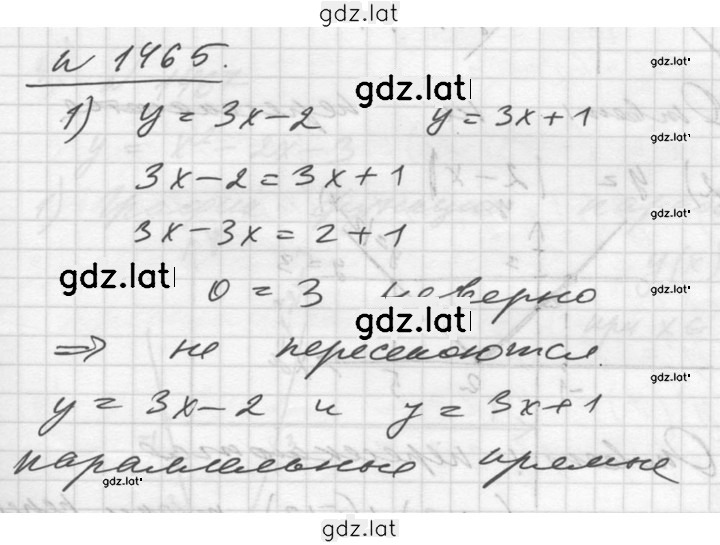 gdz.lat
№ 1465.
gdz.lat
gdz.lat
1) y = 3x - 2 y = 3x + 1
gdz.lat
3x - 2 = 3x + 1
gdz.lat
3x - 3x = 2 + 1
gdz.lat
gdz.lat
0 = 3 неверно
gdz.lat
gdz.lat
=> не пересекаются
gdz.lat
y = 3x - 2 и y = 3x + 1
параллельные прямые
gdz.lat
gdz.lat
gdz.lat